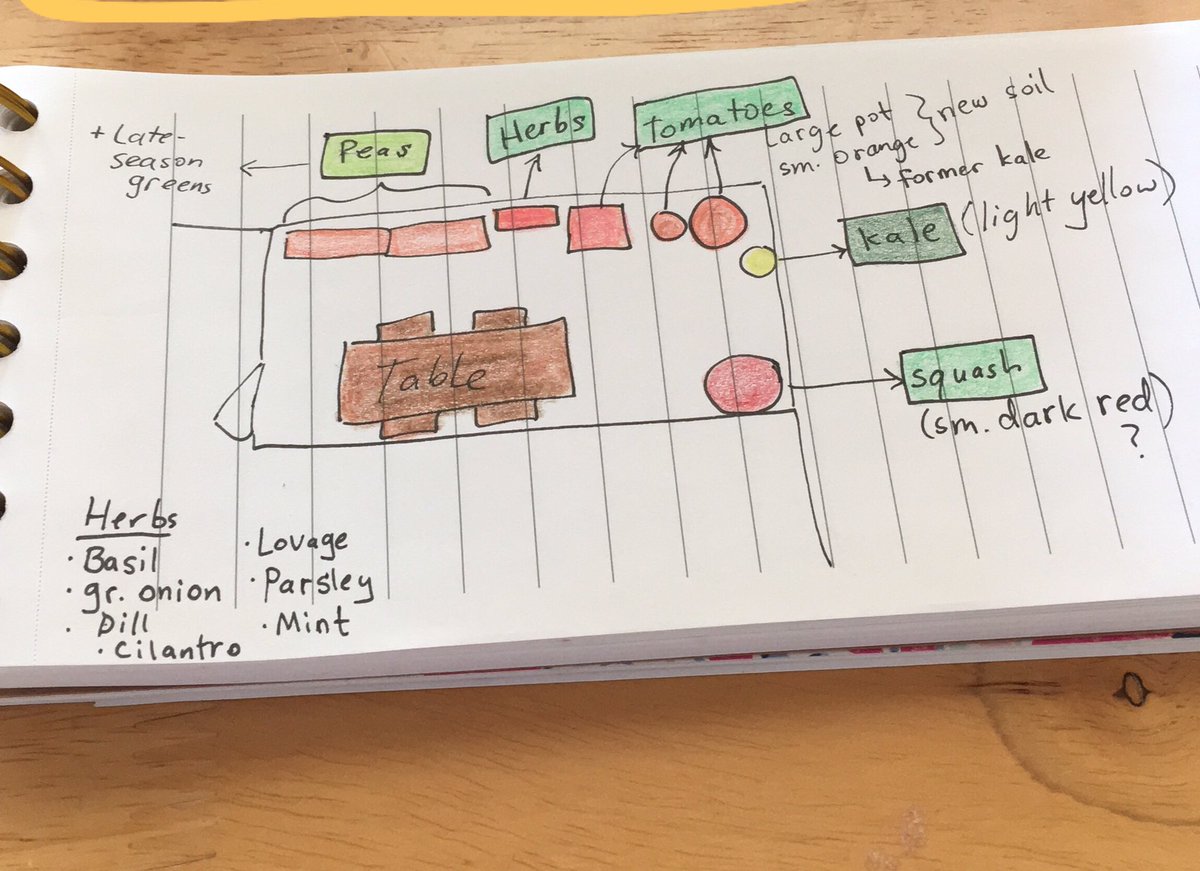 + Late-
season
greens
Peas
Herbs
Tomatoes
Large pot
sm. orange
} new soil
↳ former kale
kale
(light yellow)
Table
squash
(sm. dark red)
?
Herbs
· Basil
· gr. onion
· Dill
· Cilantro
· Lovage
· Parsley
· Mint